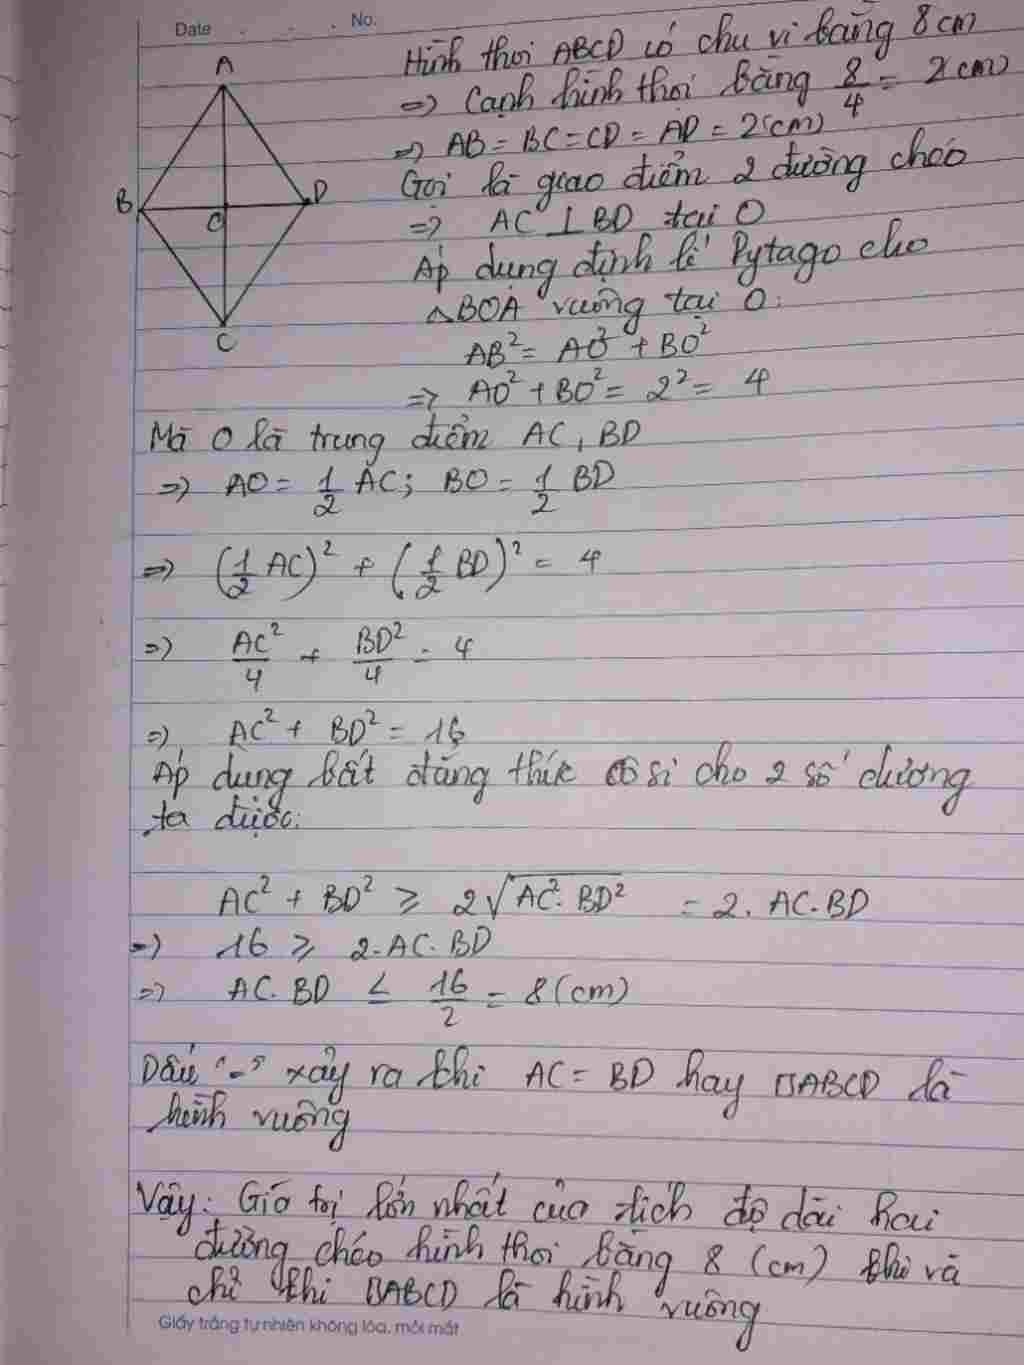 Date No.
A
B
D
O
C
Hình thoi ABCD có chu vi bằng 8cm
=> Cạnh hình thoi bằng 8/4 = 2(cm)
=> AB = BC = CD = AD = 2(cm)
Gọi là giao điểm 2 đường chéo
=> AC ⊥ BD tại O
Áp dụng định lí Pytago cho
△BOA vuông tại O:
AB² = AO² + BO²
=> AO² + BO² = 2² = 4
Mà O là trung điểm AC, BD
=> AO = 1/2 AC; BO = 1/2 BD
=> (1/2 AC)² + (1/2 BD)² = 4
=> AC²/4 + BD²/4 = 4
=> AC² + BD² = 16
Áp dụng bất đẳng thức cô si cho 2 số dương
ta được:
AC² + BD² ≥ 2√AC².BD² = 2. AC.BD
=> 16 ≥ 2.AC.BD
=> AC.BD ≤ 16/2 = 8(cm)
Dấu "=" xảy ra khi AC = BD hay □ABCD là
hình vuông
Vậy: Giá trị lớn nhất của tích độ dài hai
đường chéo hình thoi bằng 8 (cm) khi và
chỉ khi □ABCD là hình vuông
Giấy trắng tự nhiên không lóa, mỏi mắt